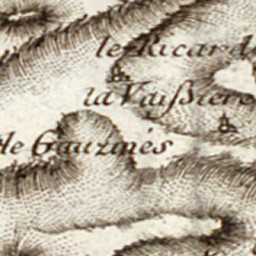 le Ricard
la Vaißiere
de Gauzinés